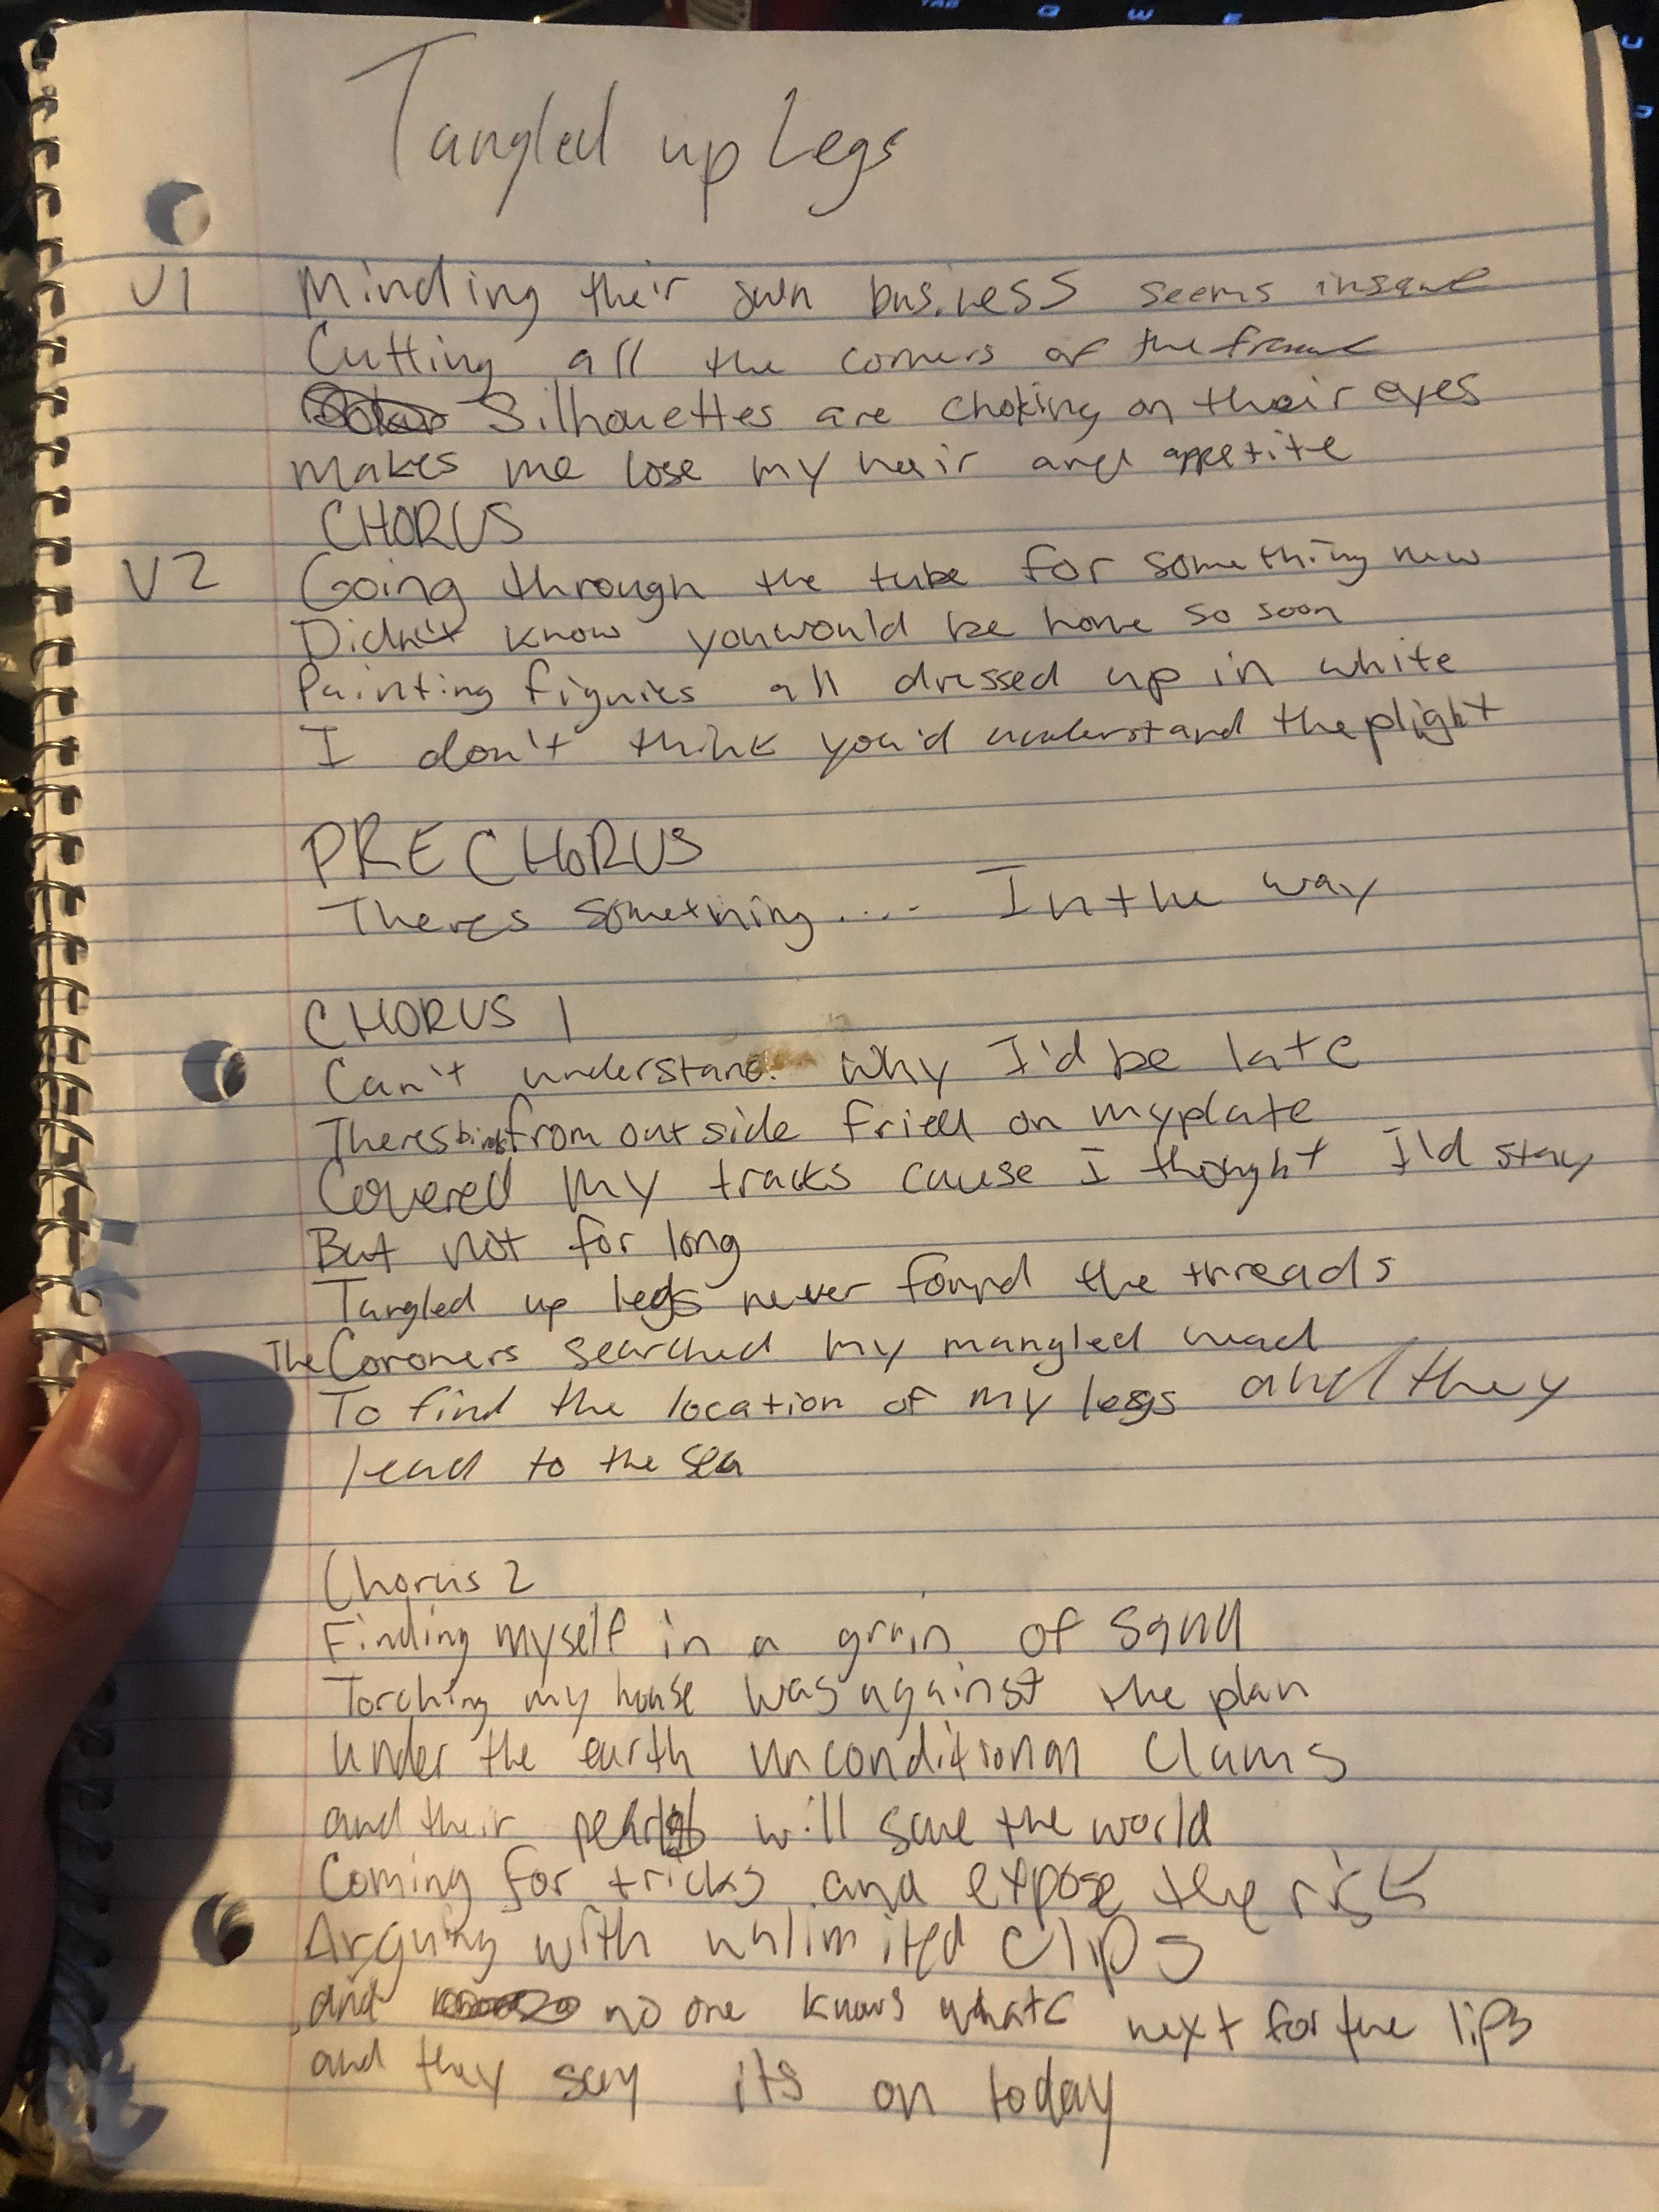 Tangled up Legs
V1 Minding their own business seems insane
Cutting all the corners of the frame
Silhouettes are choking on their eyes
Makes me lose my hair and appetite
CHORUS
V2 Going through the tube for something new
Didn't know you would be home so soon
Painting figures all dressed up in white
I don't think you'd understand the plight
PRECHORUS
Theres something.... In the way
CHORUS 1
Can't understand why I'd be late
Theres birds from outside fried on my plate
Covered my tracks cause I thought I'd stay
But not for long
Tangled up legs never found the threads
The Coroners searched my mangled head
To find the location of my legs and they
lead to the sea
Chorus 2
Finding myself in a grain of sand
Torching my house was against the plan
Under the earth unconditional Clams
and their pearls will save the world
Coming for tricks and expose the
Arguing with unlimited clips
and no one knows whats next for the lips
and they say its on today